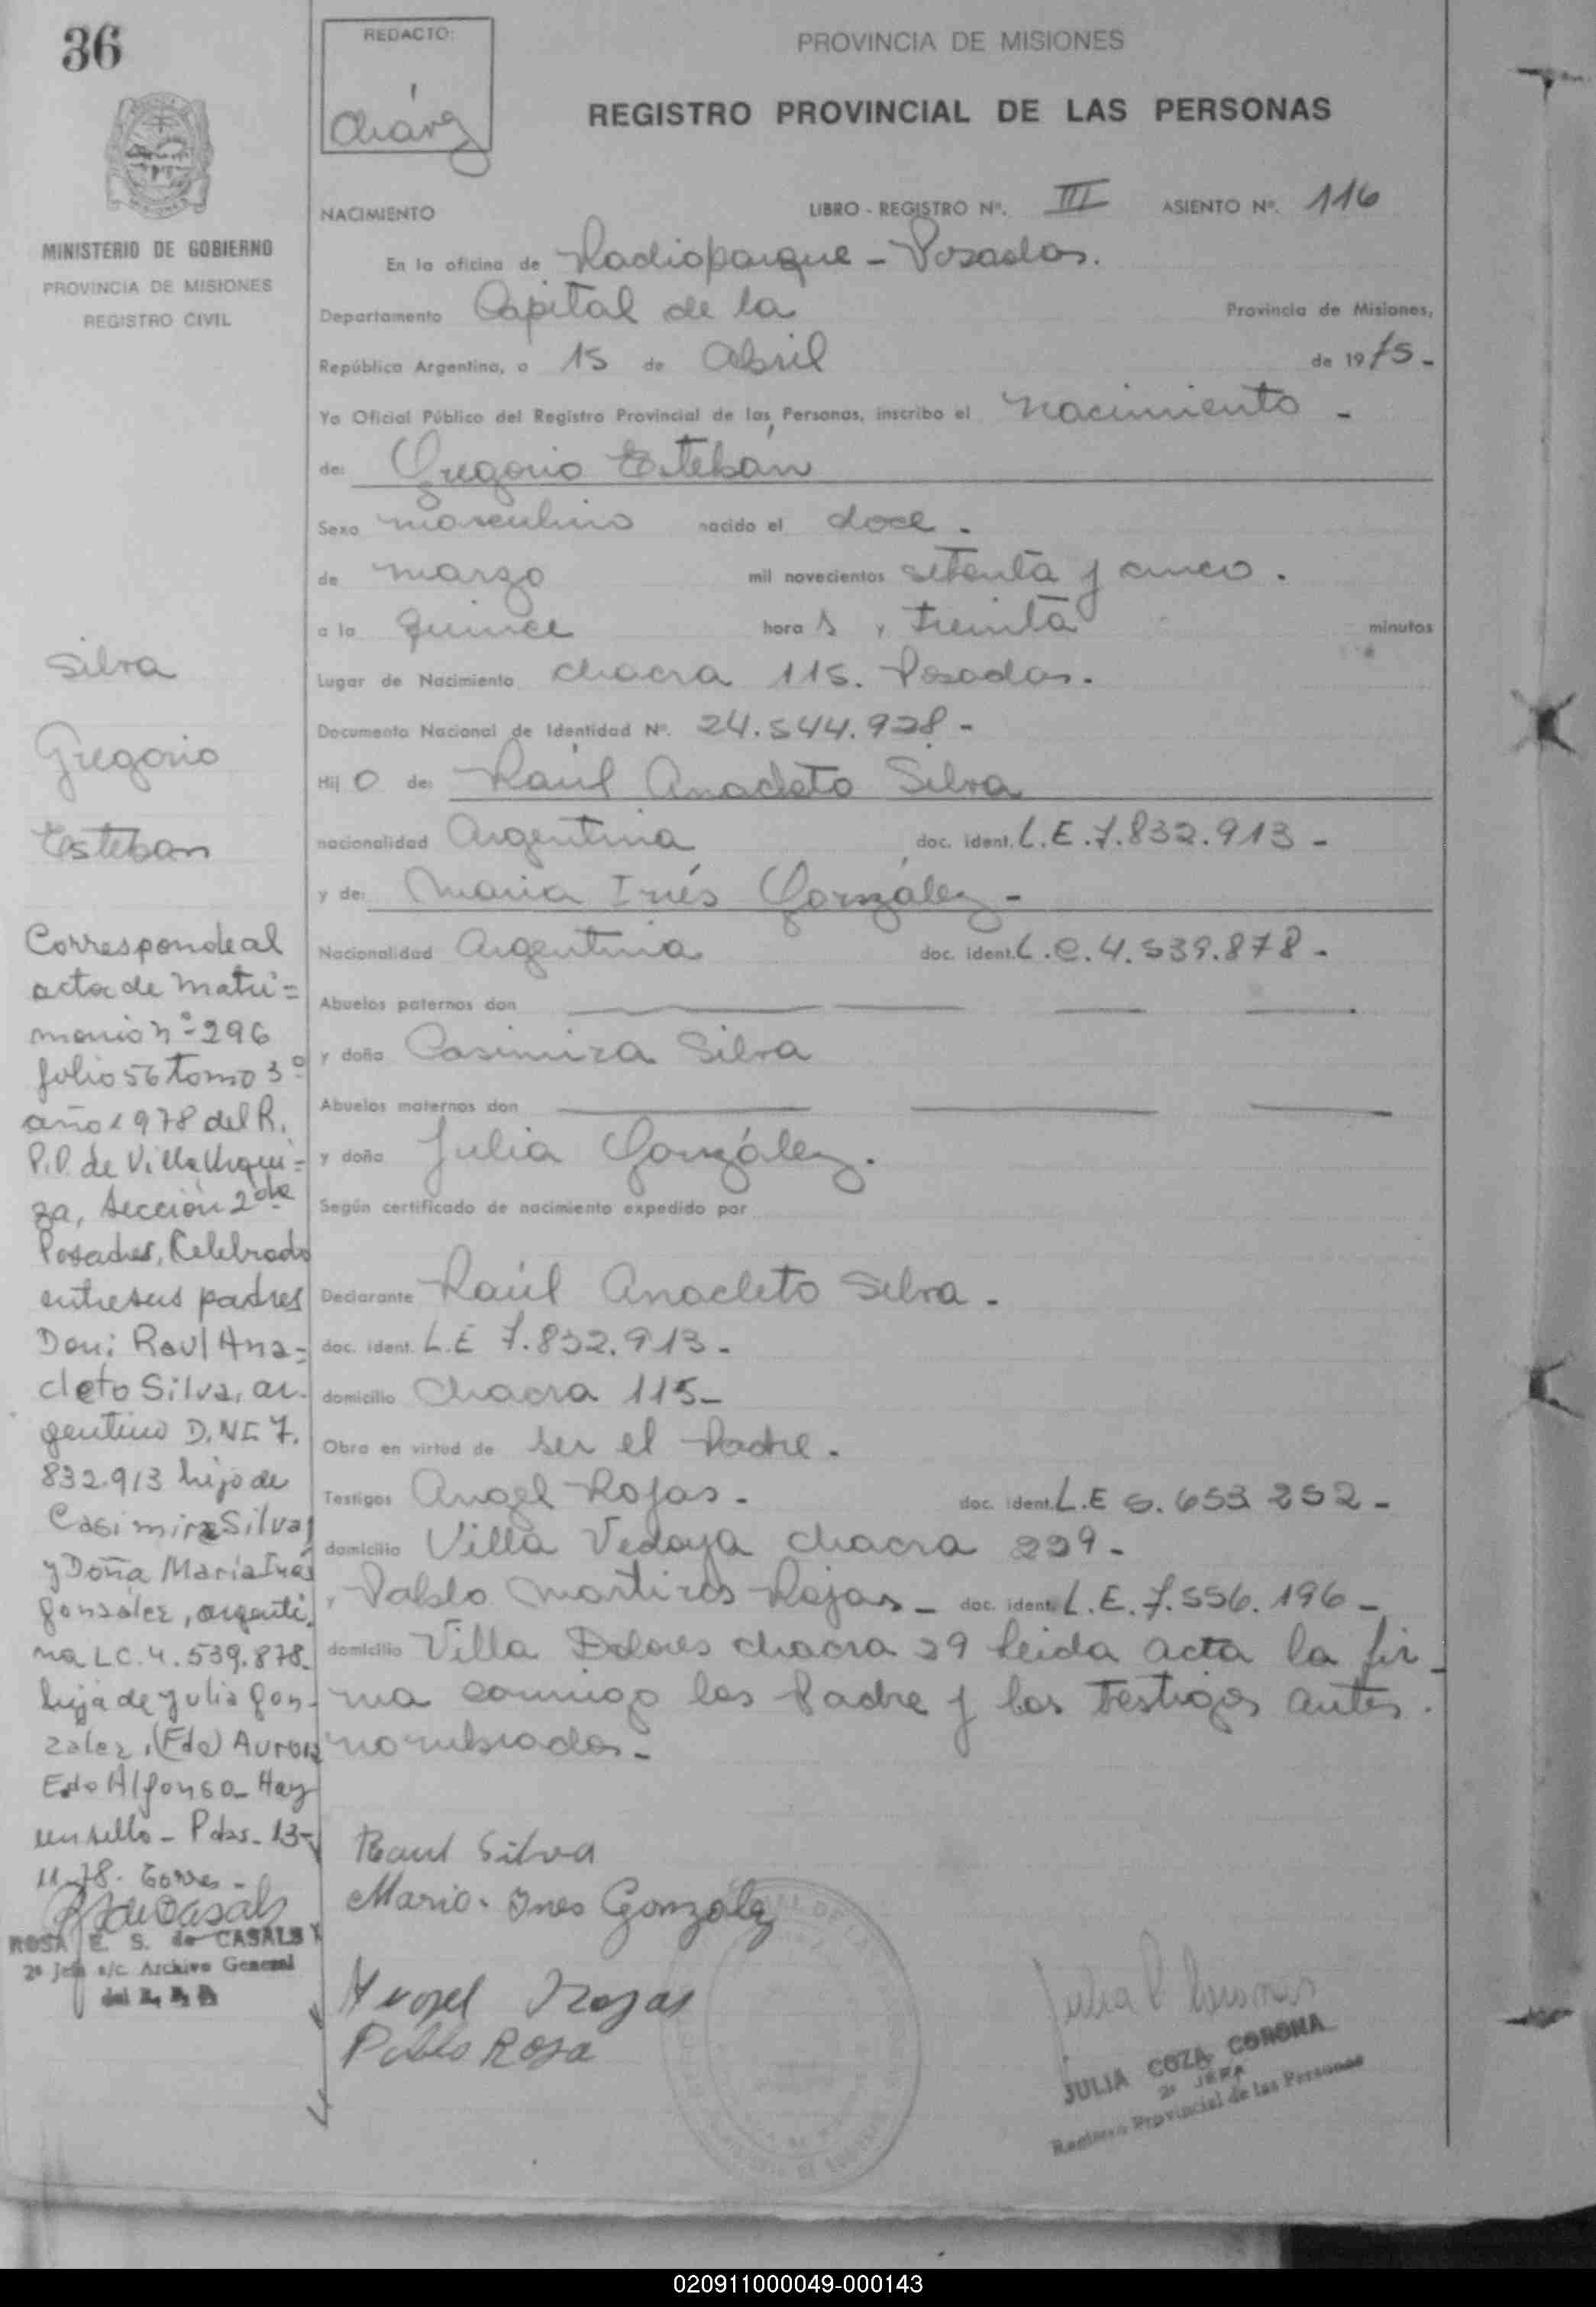 36
REDACTO:
Chávez
PROVINCIA DE MISIONES
REGISTRO PROVINCIAL DE LAS PERSONAS
MINISTERIO DE GOBIERNO
PROVINCIA DE MISIONES
REGISTRO CIVIL
NACIMIENTO LIBRO - REGISTRO Nº. III ASIENTO Nº. 116
En la oficina de Radioparque - Posadas.
Departamento Capital de la Provincia de Misiones,
República Argentina, a 15 de Abril de 1975-
Yo Oficial Público del Registro Provincial de las Personas, inscribo el nacimiento -
de: Gregorio Esteban
Sexo masculino nacido el doce.
de marzo mil novecientos setenta y cinco.
a la quince hora s y treinta minutos
Lugar de Nacimiento chacra 115. Posadas.
Documento Nacional de Identidad Nº. 24.544.928-
Hij o de: Raúl Anacleto Silva
nacionalidad Argentina doc. ident. L.E. 7.832.913-
y de: María Inés González-
Nacionalidad Argentina doc. ident. L.C. 4.539.878-
Abuelos paternos don
y doña Casimira Silva
Abuelos maternos don
y doña Julia González.
Según certificado de nacimiento expedido por
Declarante Raúl Anacleto Silva.
doc. ident. L.E 7.832.913-
domicilio Chacra 115-
Obra en virtud de ser el Padre.
Testigos Angel Rojas. doc. ident. L.E 5.653.252-
domicilio Villa Vedoya chacra 229-
y Pablo Martires Rojas- doc. ident. L.E. 7.556.196-
domicilio Villa Dolores chacra 29 leida acta la fir-
ma conmigo los Padre y los testigos antes.
nombrados-
Silva
Gregorio
Esteban
Corresponde al
acta de matri=
monio nº 296
folio 56 tomo 3º
año 1978 del R.
P.P. de Villa Urqui=
za, sección 2da
Posadas, Celebrado
entre sus padres
Don: Raul Ana=
cleto Silva, ar-
gentino D.NI 7.
832.913 hijo de
Casimira Silva
y Doña María Inés
gonzález, argenti.
na LC. 4.539.878.
hija de Julia gon-
zalez, (Fdo) Aurora
Edo Alfonso- Hay
un sello - Pdas. 13-
11-78. Torres-
ROSA E. S. de CASALS
2ª Jefa a/c. Archivo General
del R. P. P.
Raul Silva
Maria. Ines Gonzalez
Angel Rojas
Pablo Rosa
JULIA COZA CORONA
2ª JEFA
Registro Provincial de las Personas
020911000049-000143